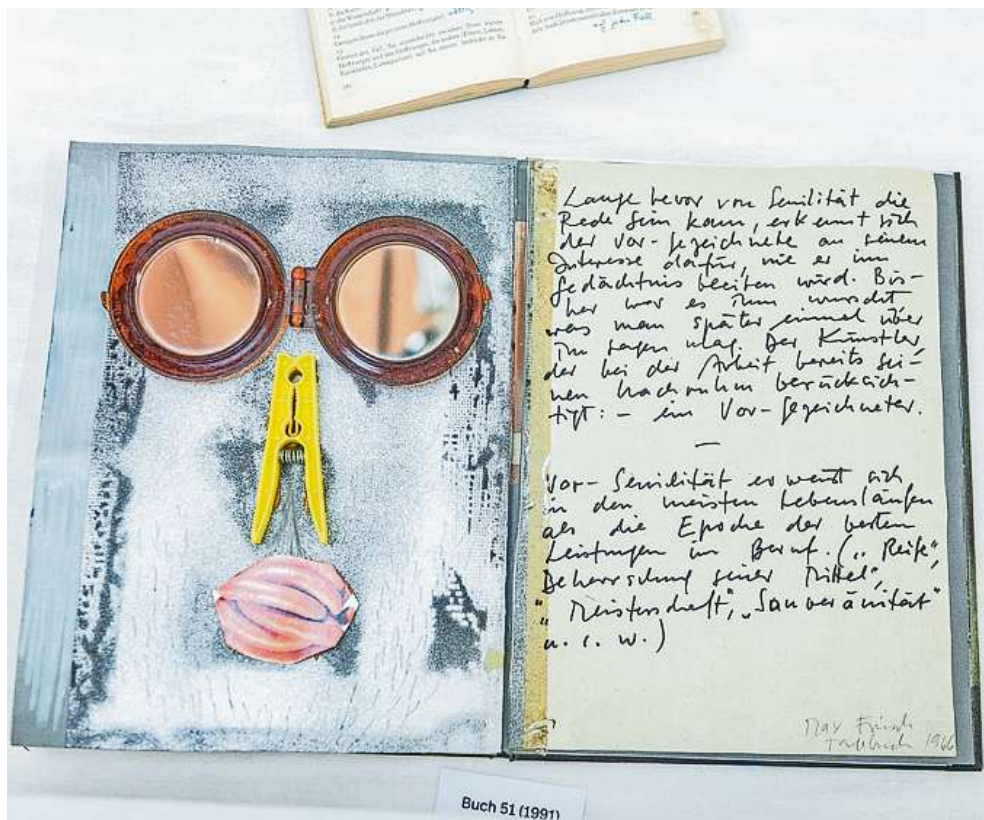 auf jeden Fall
Lange bevor von Senilität die
Rede sein kann, erkennt sich
der Vor-gezeichnete an seinem
Interesse dafür, wie er im
Gedächtnis bleiben wird. Bis-
her war es ihm wurscht
was man später einmal über
ihn sagen mag. Der Künstler,
der bei der Arbeit bereits sei-
nen Nachruhm berücksich-
tigt: – ein Vor-gezeichneter.
—
Vor-Senilität erweist sich
in den meisten Lebensläufen
als die Epoche der besten
Leistungen im Beruf. („Reife",
Beherrschung seiner Mittel",
"Meisterschaft", „Souveränität"
u. s. w.)
Max Frisch
Tagebuch 1966
Buch 51 (1991)